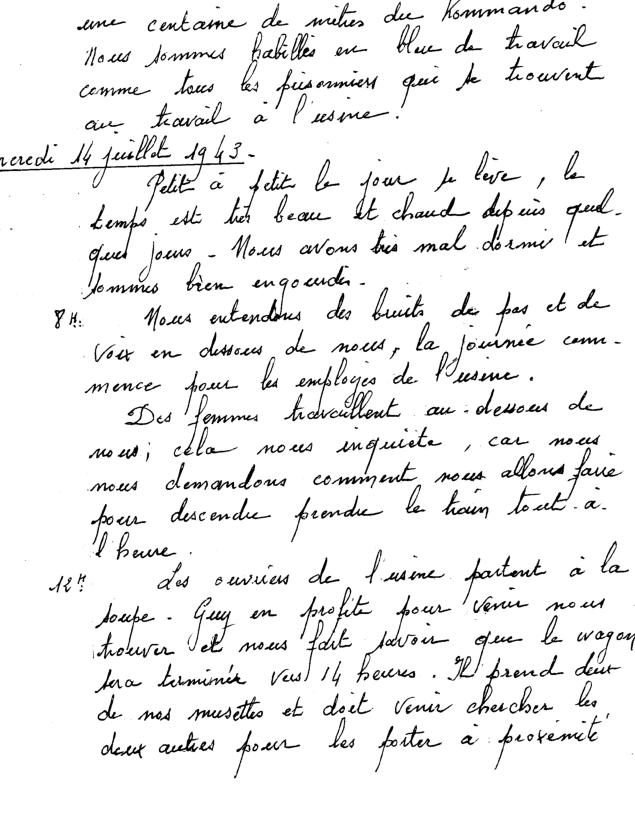 une centaine de mètres du Kommando.
Nous sommes habillés en bleu de travail
comme tous les prisonniers qui se trouvent
au travail à l'usine.
rcredi 14 juillet 1943.-
Petit à petit le jour se lève, le
temps est très beau et chaud depuis quel-
ques jours - Nous avons très mal dormi et
sommes bien engourdis.
8 H: Nous entendons des bruits de pas et de
voix en dessous de nous, la journée com-
mence pour les employés de l'usine.
Des femmes travaillent au-dessous de
nous; cela nous inquiète, car nous
nous demandons comment nous allons faire
pour descendre prendre le train tout-à-
l'heure.
12 H: Les ouvriers de l'usine partent à la
soupe - Guy en profite pour venir nous
trouver et nous fait savoir que le wagon
sera terminée vers 14 heures. Il prend deux
de nos musettes et doit venir chercher les
deux autres pour les porter à proximité